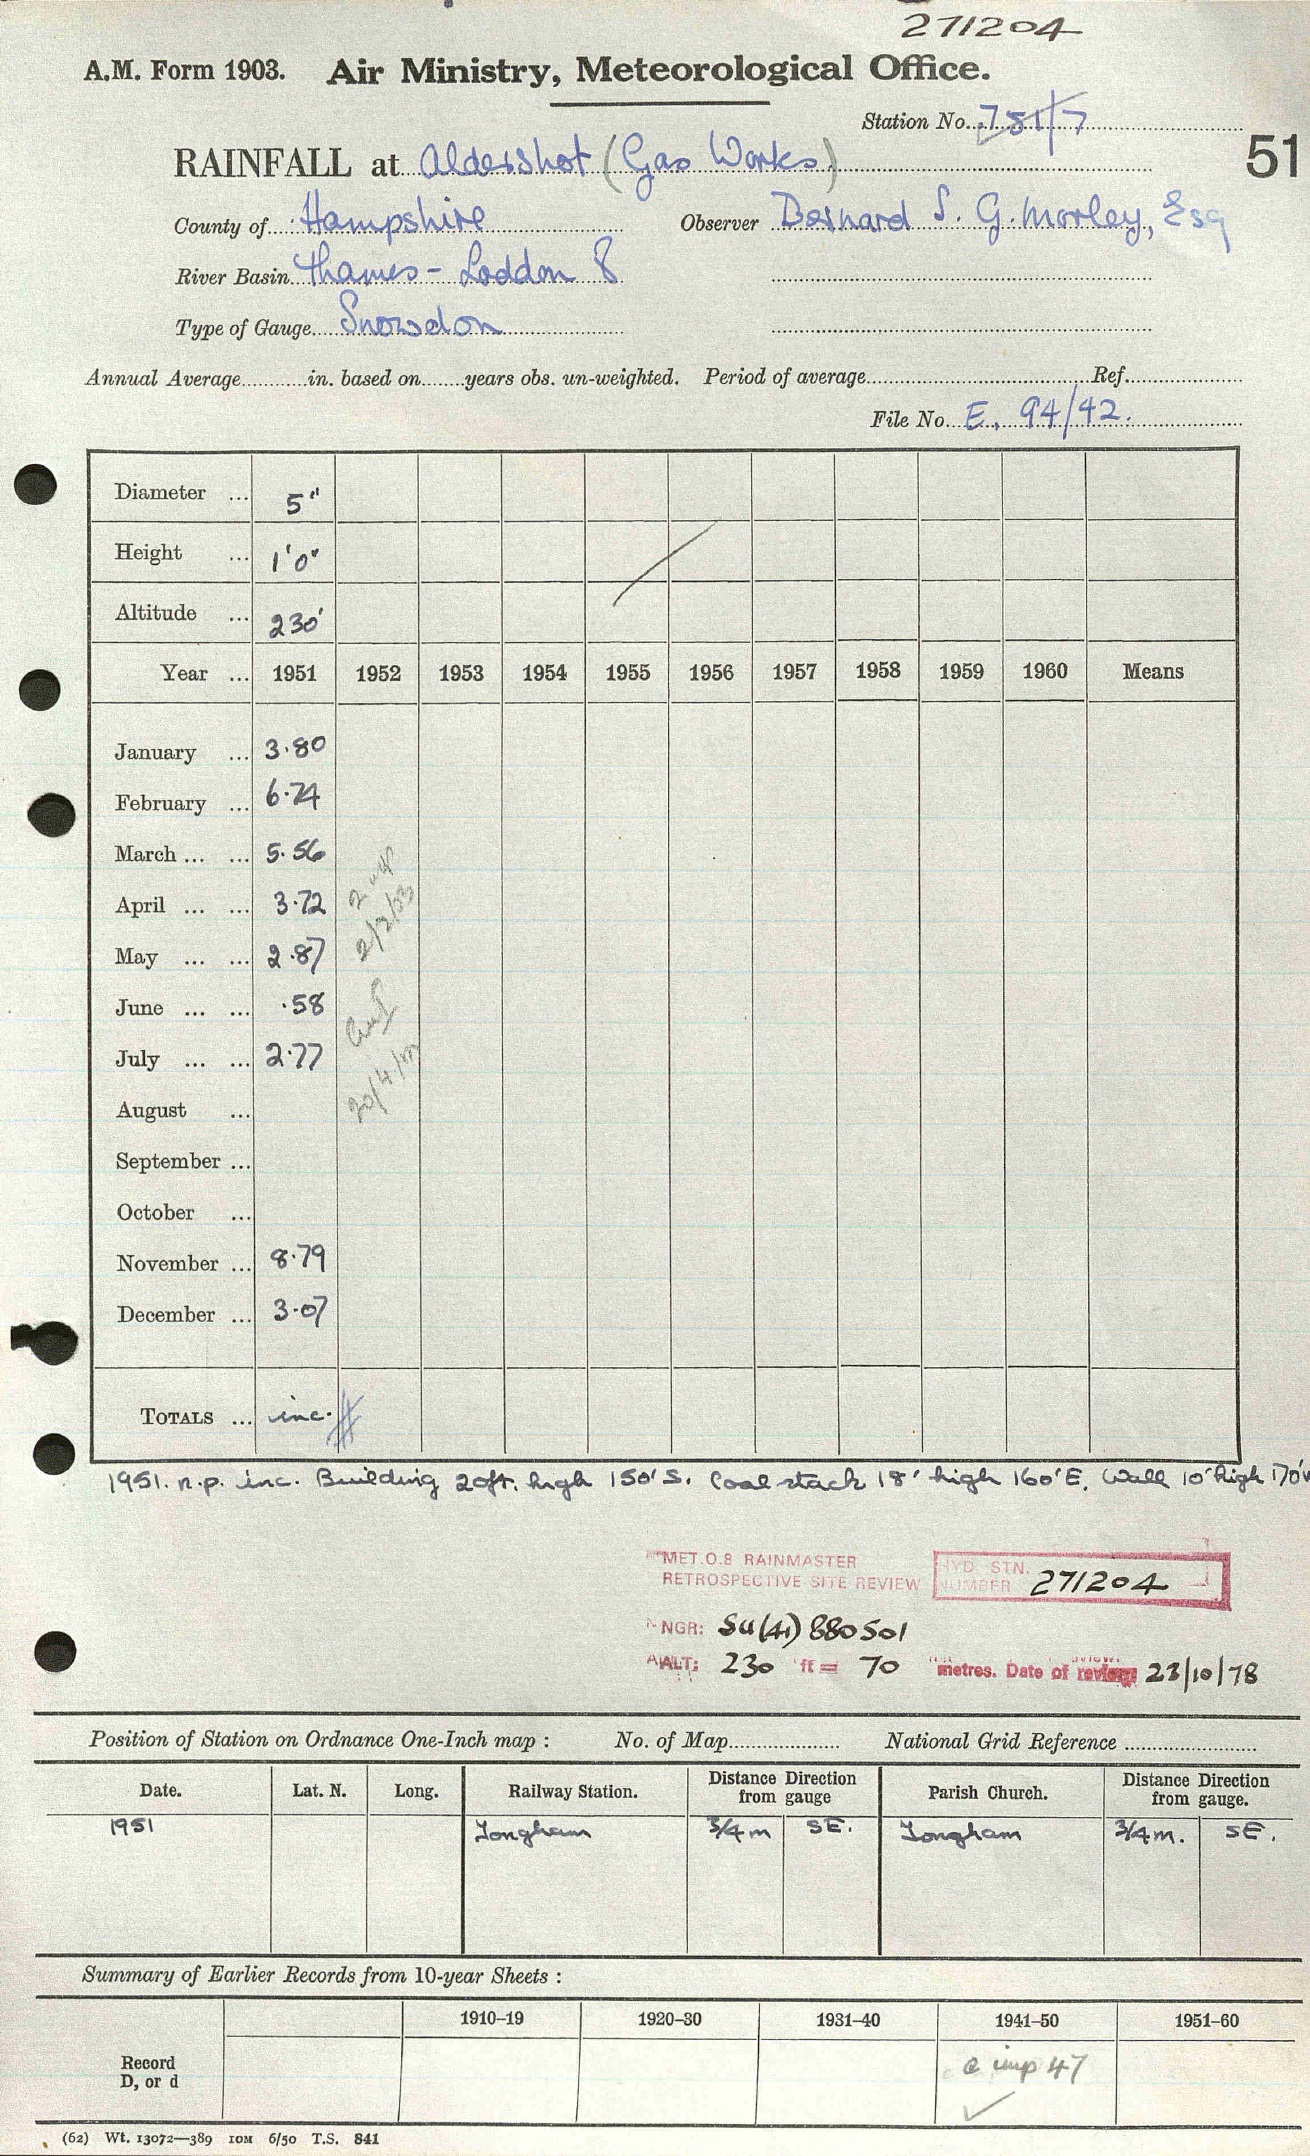 271204
A.M. Form 1903. Air Ministry, Meteorological Office.
Station No. 751/7
RAINFALL at Aldershot (Gas Works) 51
County of Hampshire Observer Bernard S. G. Morley, Esq
River Basin Thames - Loddon 8
Type of Gauge Snowdon
Annual Average in. based on years obs. un-weighted. Period of average Ref.
File No. E. 94/42.
Diameter ... 5"
Height ... 1'0"
Altitude ... 230'
Year ... 1951 1952 1953 1954 1955 1956 1957 1958 1959 1960 Means
January ... 3.80
February ... 6.74
March ... ... 5.56
April ... ... 3.72
2/2/53
May ... ... 2.87
June ... ... .58
July ... ... 2.77
August ...
September ...
October ...
November ... 8.79
December ... 3.07
TOTALS ... inc.
1951. n.p. inc. Building 20ft. high 150' S. Coal stack 18' high 160' E. Wall 10' high 170'W
MET.O.8 RAINMASTER
RETROSPECTIVE SITE REVIEW
HYD. STN.
NUMBER 271204
NGR: SU(41) 880501
ALT: 230 ft = 70 metres. Date of review 23/10/78
Position of Station on Ordnance One-Inch map : No. of Map National Grid Reference
Date. Lat. N. Long. Railway Station. Distance from Direction gauge Parish Church. Distance from Direction gauge.
1951 Tongham 3/4 m SE. Tongham 3/4 m. SE.
Summary of Earlier Records from 10-year Sheets :
1910-19 1920-30 1931-40 1941-50 1951-60
Record
D, or d
imp 47
(62) Wt. 13072—389 10M 6/50 T.S. 841